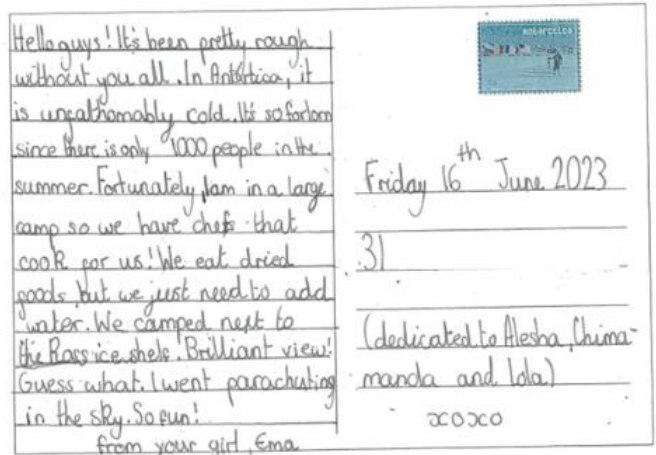 Hello guys! It's been pretty rough
without you all. In Antartica, it
is unfathomably cold. It's so forlorn
since there is only 1000 people in the
summer. Fortunately, I am in a large
camp so we have chefs that
cook for us! We eat dried
foods but we just need to add
water. We camped next to
the Ross ice shelf. Brilliant view!
Guess what. I went parachuting
in the sky. So fun!
from your girl, Ema
Antarctica
Friday 16th June 2023
31
(dedicated to Alesha, Chima-
manda and Lola)
xoxo